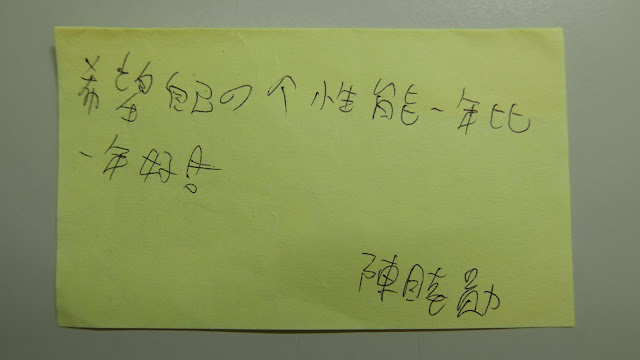 希望自己の个性能一年比
一年好!
陳 勛